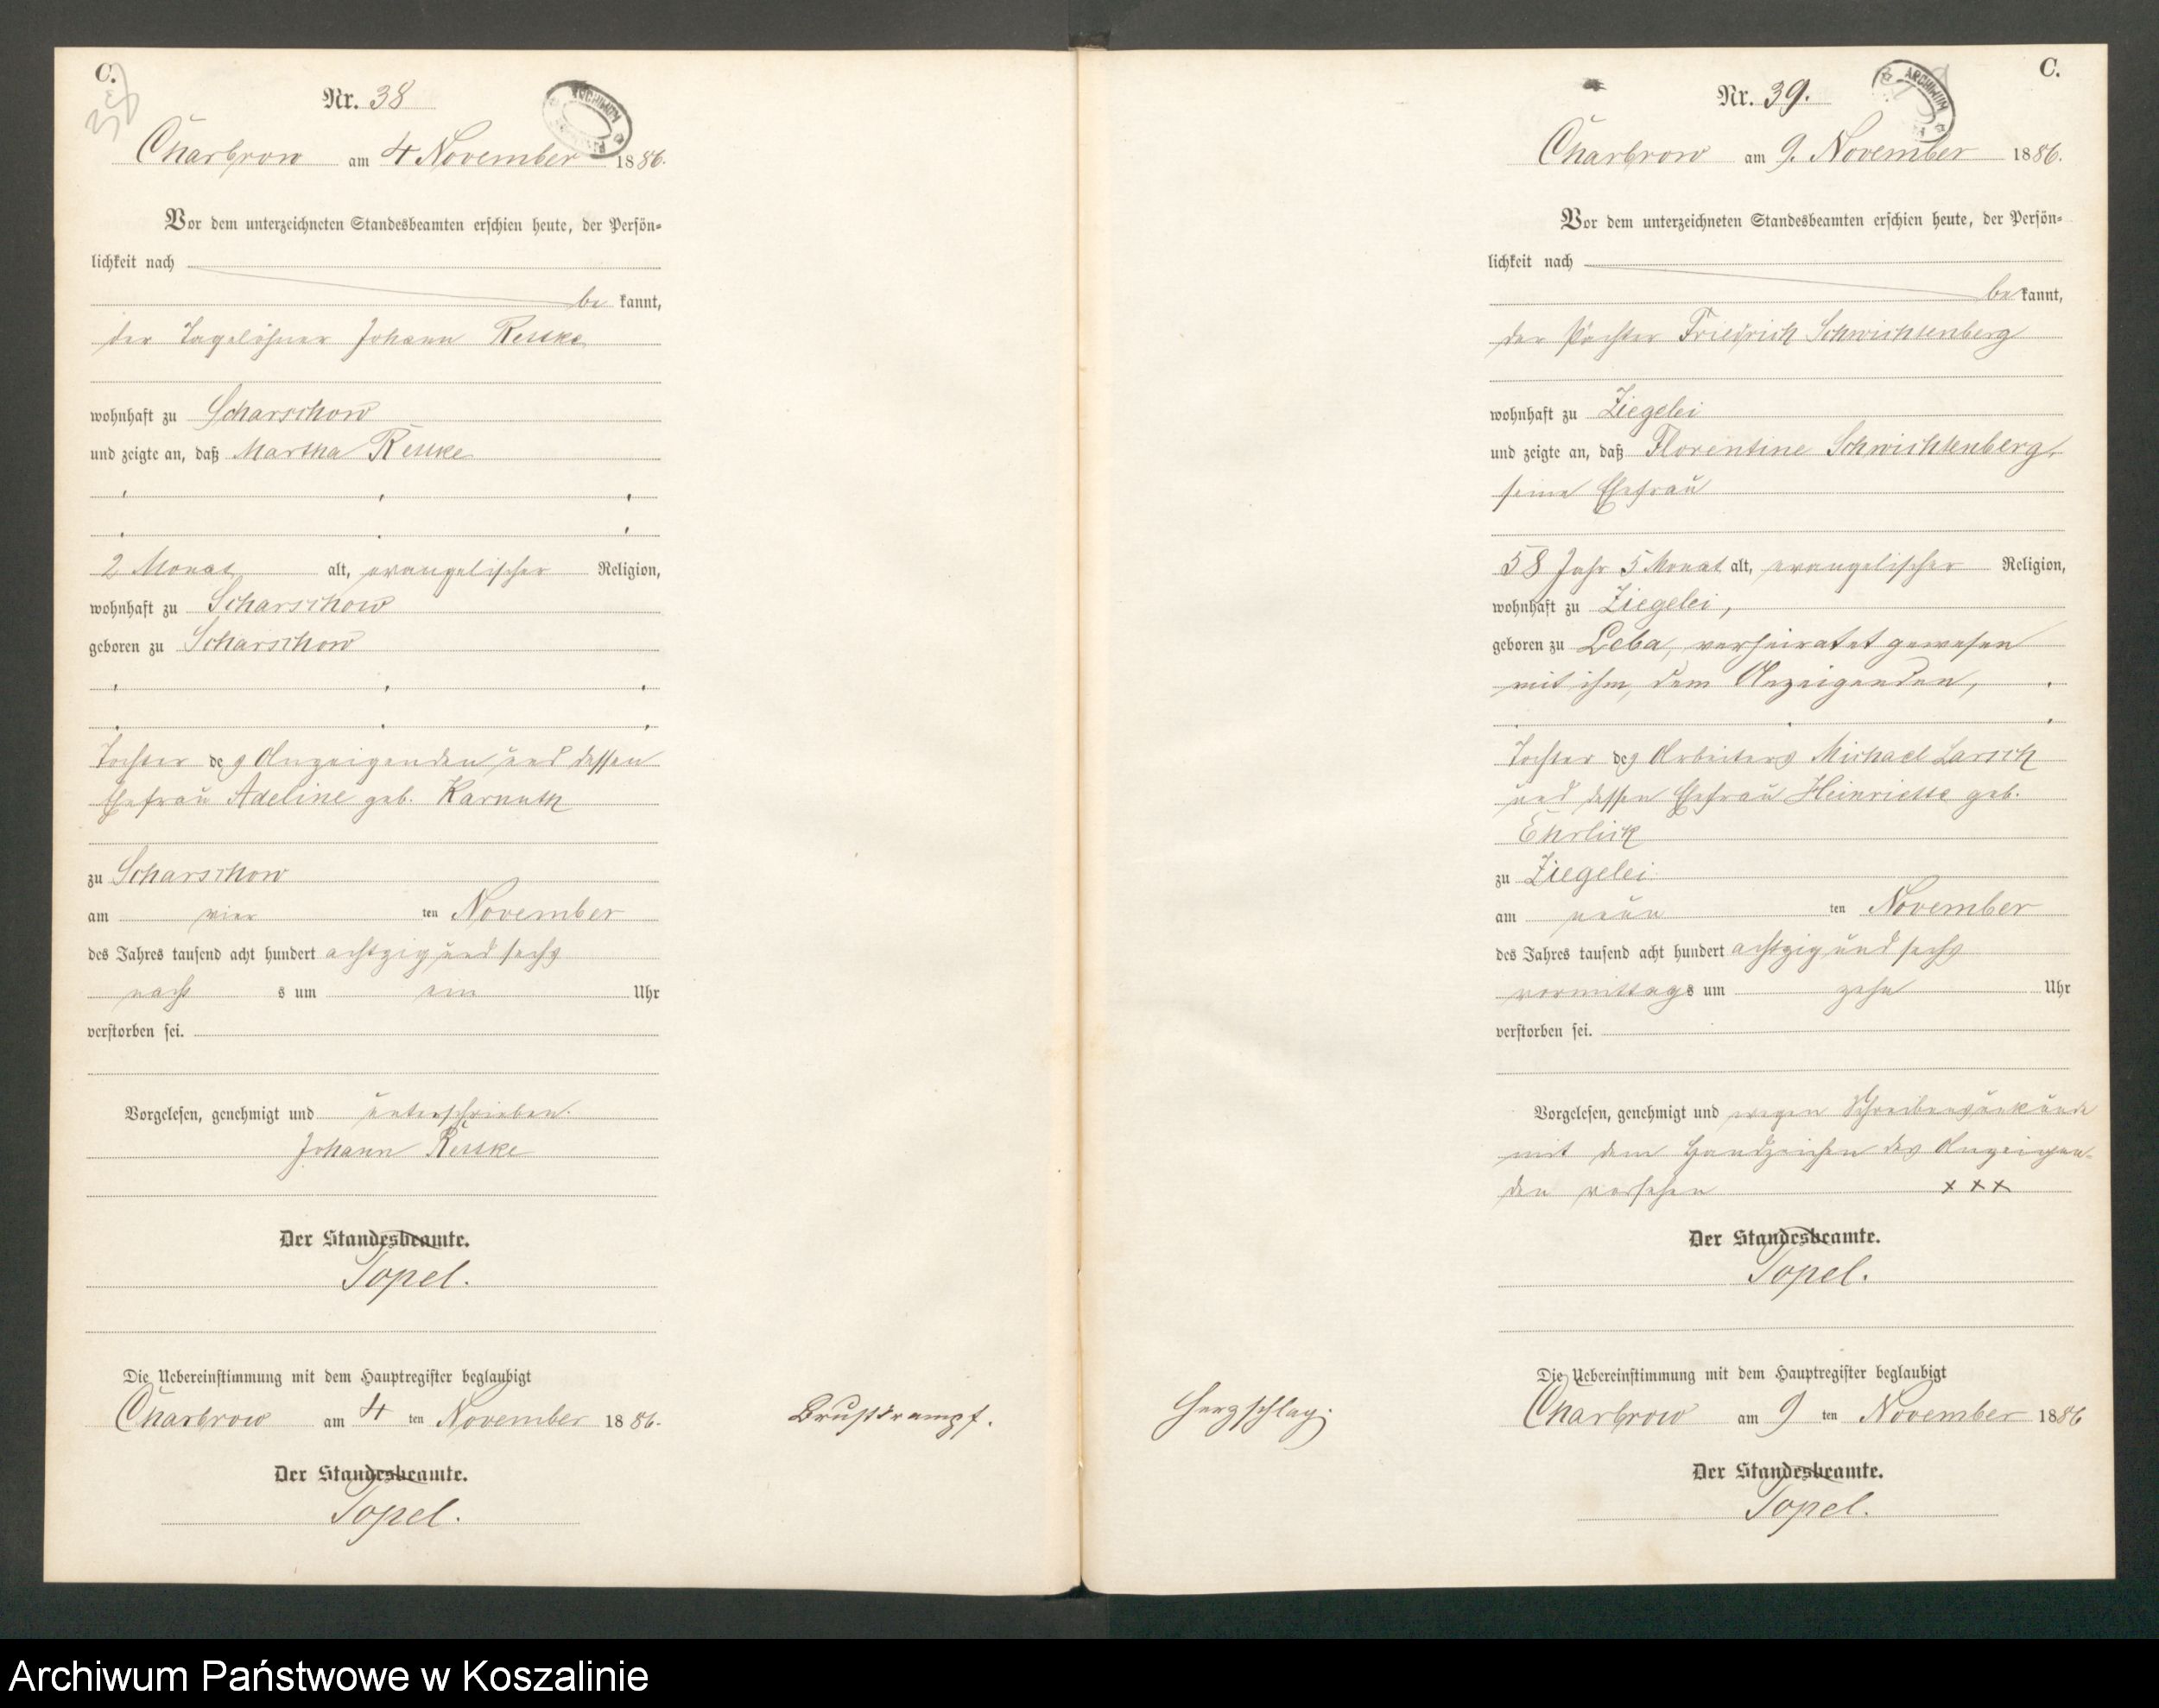 C.
Nr. 38
Charbrow am 4 November 1886.
Vor dem unterzeichneten Standesbeamten erschien heute, der Persön-
lichkeit nach
be kannt,
der Tagelöhner Johann Reske
wohnhaft zu Scharschow
und zeigte an, daß Martha Reske
2 Monat alt, evangelischer Religion,
wohnhaft zu Scharschow
geboren zu Scharschow
Tochter des Anzeigenden und dessen
Ehefrau Adeline geb. Karnath
zu Scharschow
am vier ten November
des Jahres tausend acht hundert achtzig und sechs
nacht s um ein Uhr
verstorben sei.
Vorgelesen, genehmigt und unterschrieben.
Johann Reske
Der Standesbeamte.
Topel.
Die Uebereinstimmung mit dem Hauptregister beglaubigt
Charbrow am 4 ten November 1886.
Der Standesbeamte.
Topel.
Brustkrampf.
C.
Nr. 39.
ARCHIWUM
Charbrow am 9. November 1886.
Vor dem unterzeichneten Standesbeamten erschien heute, der Persön-
lichkeit nach
be kannt,
der Pächter Friedrich Schwichtenberg
wohnhaft zu Ziegelei
und zeigte an, daß Florentine Schwichtenberg,
seine Ehefrau
58 Jahr 5 Monat alt, evangelischer Religion,
wohnhaft zu Ziegelei,
geboren zu Leba, verheiratet gewesen
mit ihm, dem Anzeigenden,
Tochter des Arbeiters Michael Larsch
und dessen Ehefrau Heinriette geb.
Ehrlich
zu Ziegelei
am neun ten November
des Jahres tausend acht hundert achtzig und sechs
vormittags um zehn Uhr
verstorben sei.
Vorgelesen, genehmigt und wegen Schreibensunkunde
mit dem Handzeichen des Anzeigen-
den versehen xxx
Der Standesbeamte.
Topel.
Die Uebereinstimmung mit dem Hauptregister beglaubigt
Charbrow am 9 ten November 1886
Der Standesbeamte.
Topel.
Herzschlag.
Archiwum Państwowe w Koszalinie